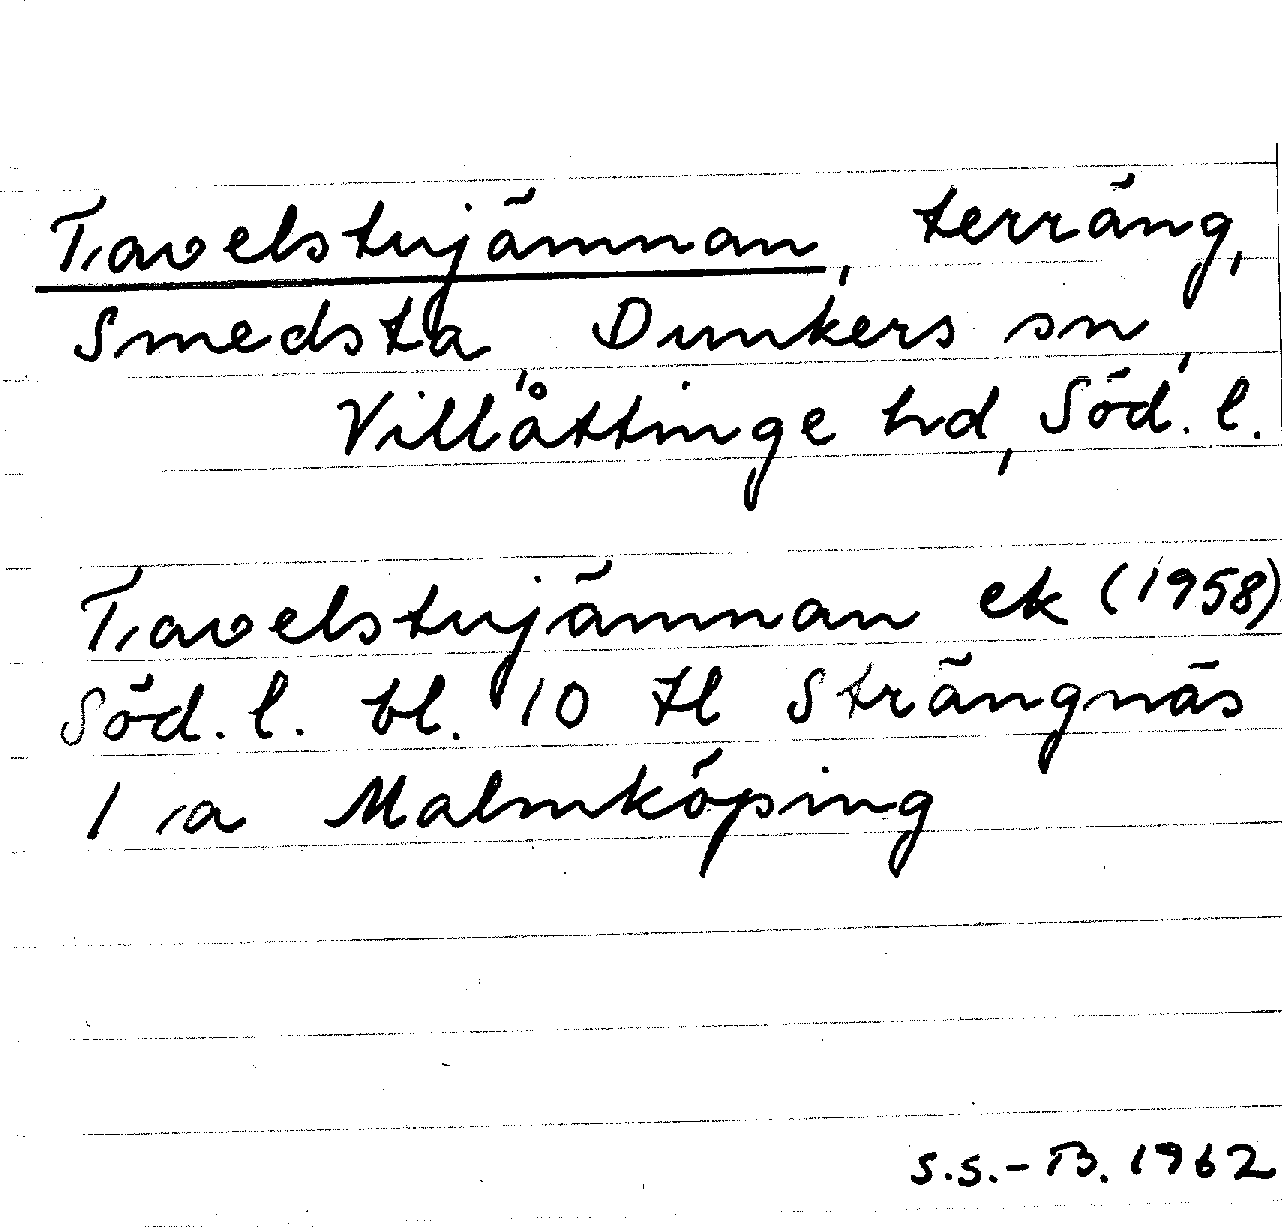 Tavelstujämnan, terräng,
Smedsta, Dunkers sn,
Villåttinge hd, Söd. l.
Tavelstujämnan ek (1958)
Söd. l. bl. 10 tl Strängnäs
1 a Malmköping
S.S.-B. 1962